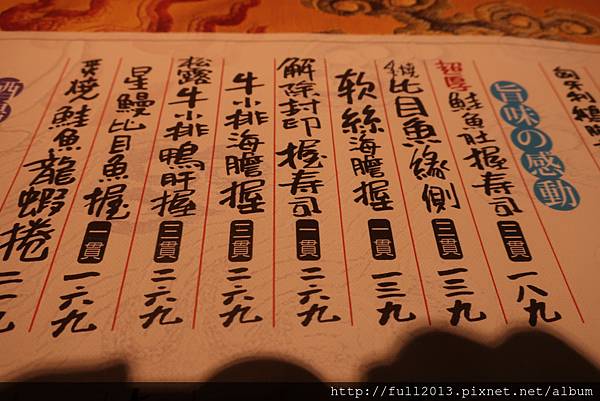 旨味の感動
超厚鮭魚肚握壽司 三貫 一八九
炙燒比目魚緣側 三貫 一三九
軟絲海膽握 一貫 一三九
解除封印握寿司 一貫 二六九
牛小排海膽握 三貫 二六九
松露牛小排鴨肝握 三貫 二六九
星鰻比目魚握 一貫 一六九
炙燒鮭魚龍蝦捲
http://full2013.pixnet.net/album